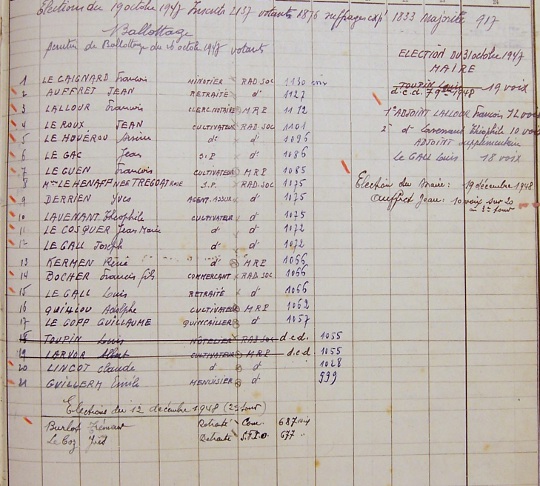 Elections du 19 octobre 1947 Inscrits 2157 votants 1876 suffrage exp. 1833 Majorité 917
Ballottage
scrutin de Ballottage du octobre 1947 votants
1 LE GAIGNARD Francois MINOTIER RAD.SOC 1130 voix
2 AUFFRET JEAN RETRAITÉ d° 1127
3 LALLOUR Francois CLERC NOTAIRE M.R.P. 1112
4 LE ROUX JEAN CULTIVATEUR RAD.SOC 1101
5 LE HOUÉROU d° d° 1096
6 LE GAC Jean S.P d° 1086
7 LE GUEN Francois CULTIVATEUR M.R.P 1085
8 Mme LE HENAFF NÉE TREGOAT S.P. RAD.SOC 1075
9 DERRIEN Yves AGENT. ASSUR d° 1075
10 LAVENANT Théophile CULTIVATEUR d° 1075
11 LE COSQUER Jean Marie d° d° 1072
12 LE GALL Joseph d° d° 1072
13 KERMEN René d° M.R.P. 1066
14 BOCHER Francis fils COMMERCANT RAD.SOC 1066
15 LE GALL Louis RETRAITÉ d° 1066
16 QUILLOU Adolphe CULTIVATEUR M.R.P. 1062
17 LE GOFF GUILLAUME QUINCAILLER d° 1057
18 TOUPIN Louis HÔTELIER RAD.SOC déd. 1055
19 LARVOR Albert CULTIVATEUR M.R.P. déd 1055
20 LINCOT Claude d° d° 1028
21 GUILLERM Emile MENUISIER d° 939
Elections du 12 décembre 1948 (2e tour)
Burlot Retraité Com. 687 voix
Le Coz Retraité S.F.I.O. 677 "
ELECTION DU 31 octobre 1947
MAIRE
TOUPIN Louis 19 voix
déd. 1948
1er ADJOINT LALLOUR Francois 12 voix
2e d° Lavenant Théophile 10 voix
ADJOINT supplémentaire
Le GALL Louis 18 voix
Election du Maire: 19 décembre 1948
Auffret Jean: 10 voix sur 20
3e tour